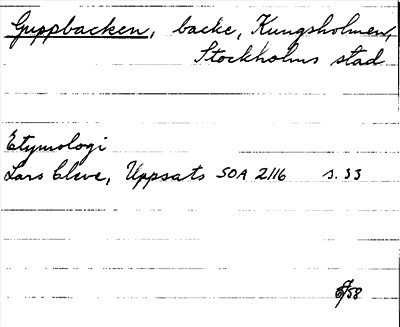 Guppbacken, backe, Kungsholmen,
Stockholms stad
Etymologi
Lars Cleve, Uppsats SOA 2116 s. 33